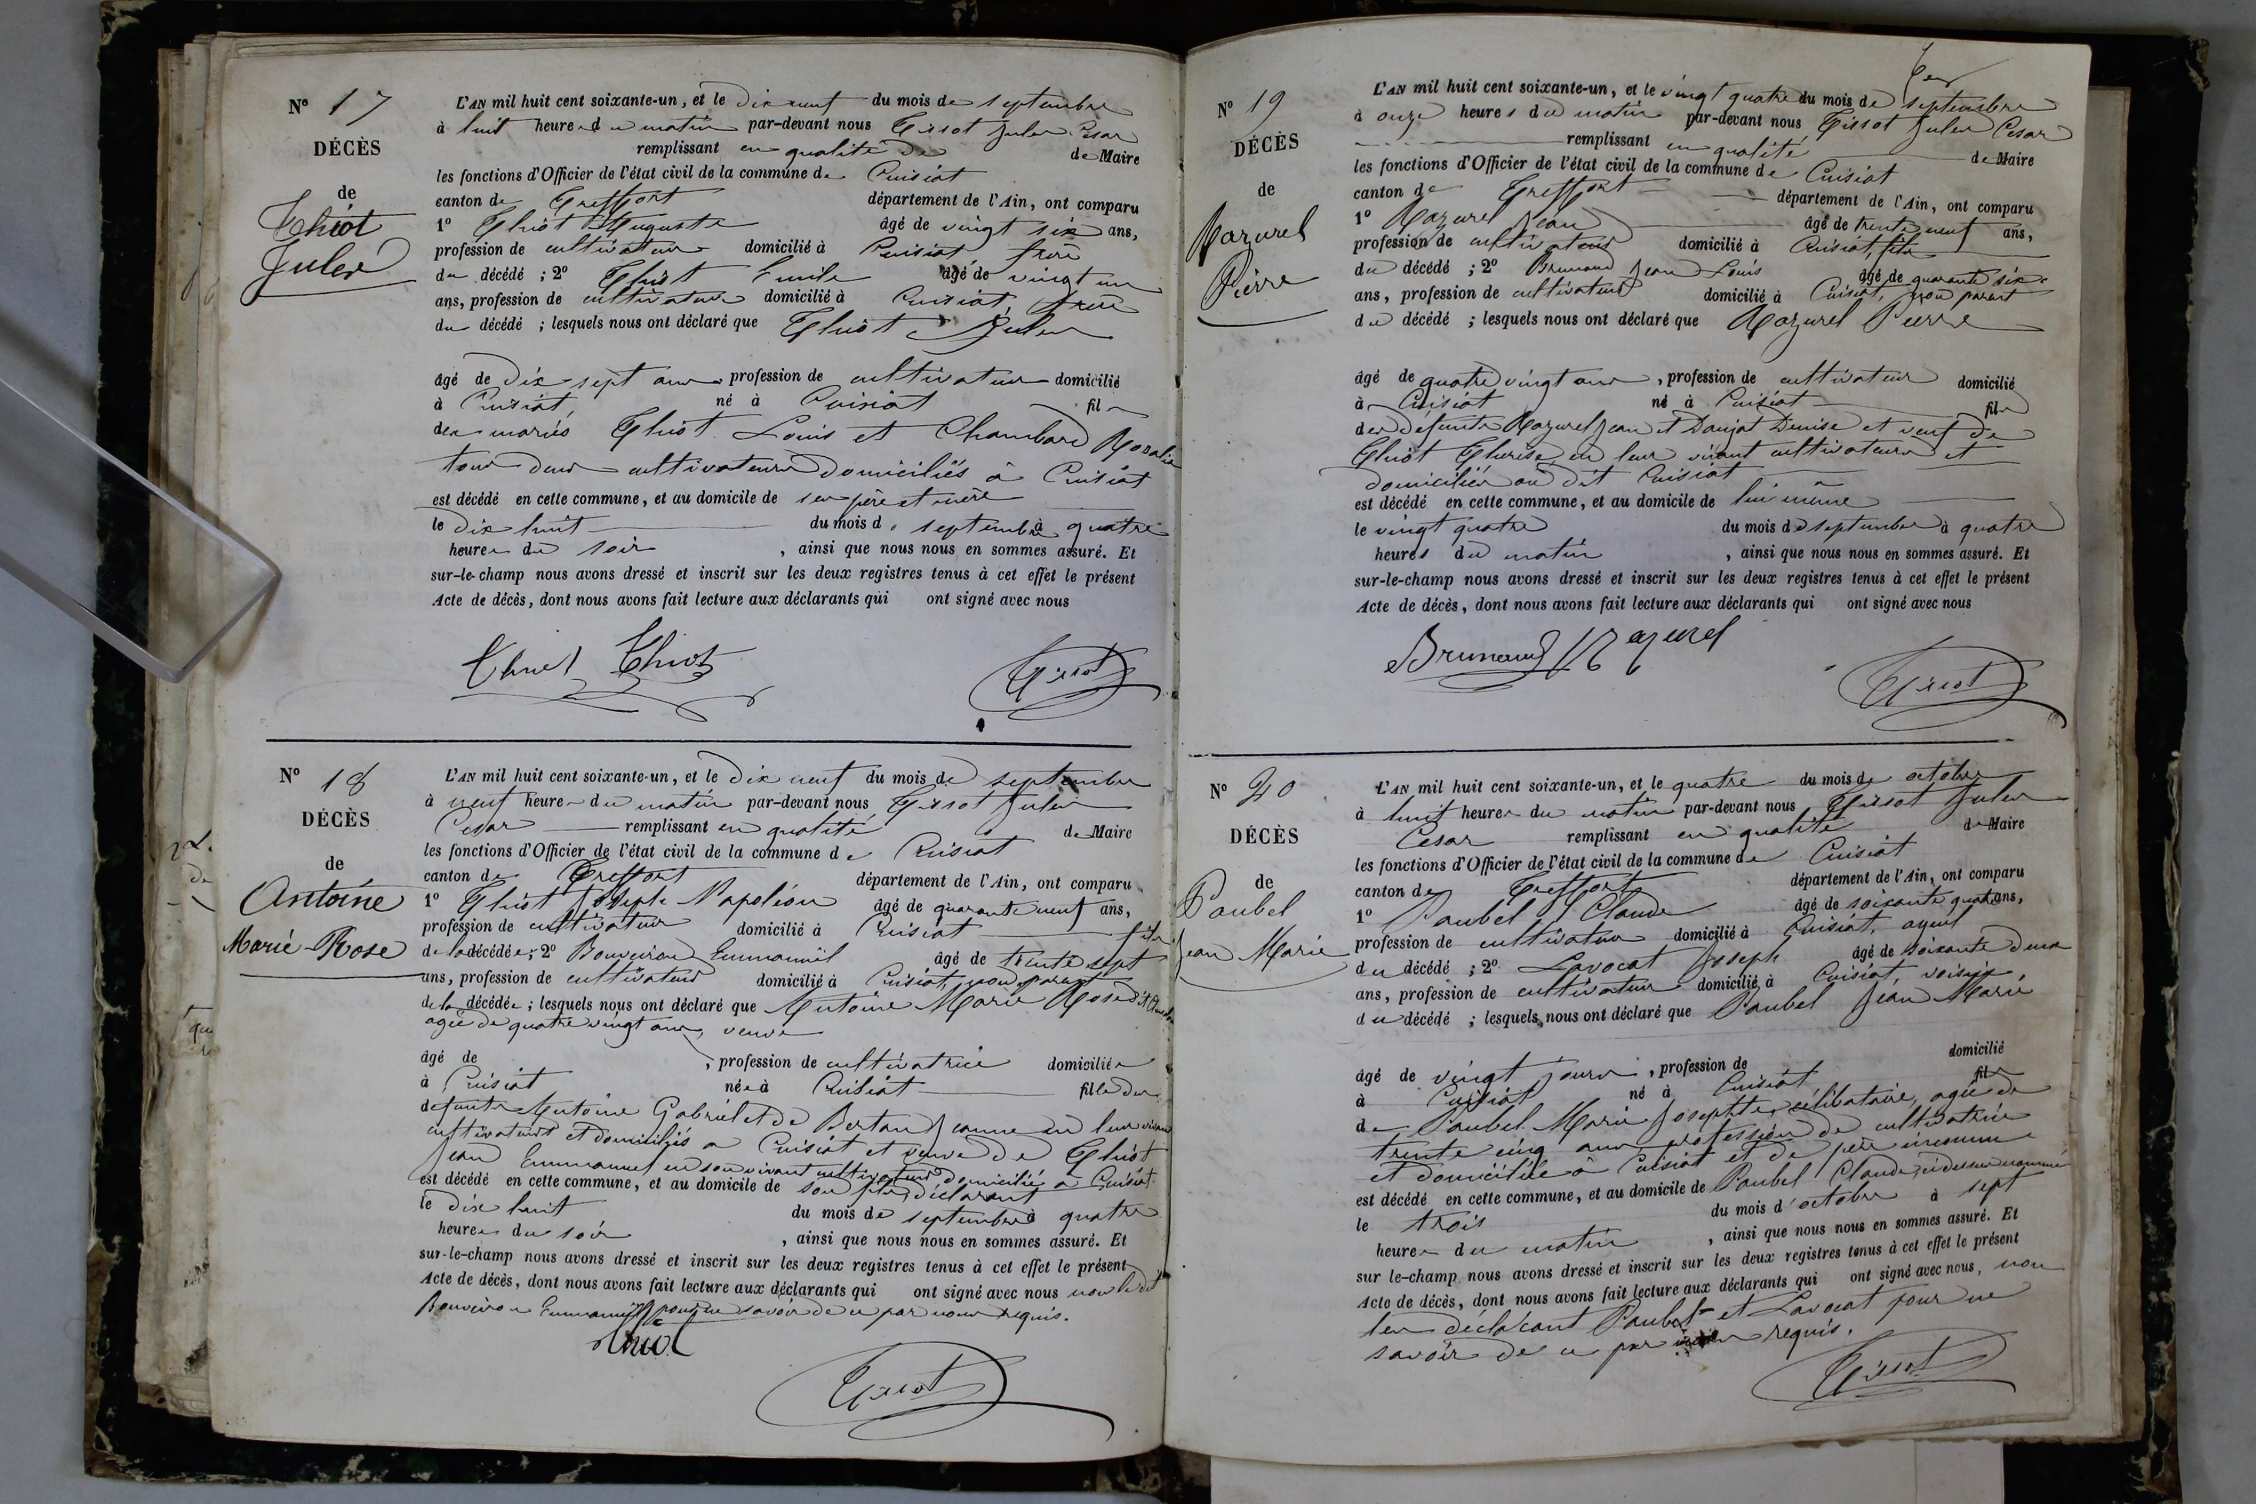 Nº 17
DÉCÈS
de
Thiot
Jules
L'AN mil huit cent soixante-un, et le dix neuf du mois de septembre
à huit heures du matin par-devant nous Tissot Jules César
remplissant en qualité de de Maire
les fonctions d'Officier de l'état civil de la commune de Cuisiat
canton de Treffort département de l'Ain, ont comparu
1º Thiot Auguste âgé de vingt six ans,
profession de cultivateur domicilié à Cuisiat, frère
du décédé ; 2º Thiot Emile âgé de vingt un
ans, profession de cultivateur domicilié à Cuisiat, frère
du décédé ; lesquels nous ont déclaré que Thiot Jules
âgé de dix sept ans profession de cultivateur domicilié
à Cuisiat, né à Cuisiat fils
des mariés Thiot Louis et Chambard Rosalie
tous deux cultivateurs domiciliés à Cuisiat
est décédé en cette commune, et au domicile de ses père et mère
le dix huit du mois de septembre à quatre
heures du soir , ainsi que nous nous en sommes assuré. Et
sur-le-champ nous avons dressé et inscrit sur les deux registres tenus à cet effet le présent
Acte de décès, dont nous avons fait lecture aux déclarants qui ont signé avec nous
Thiot Thiot Tissot
Nº 18
DÉCÈS
de
Antoine
Marie-Rose
L'AN mil huit cent soixante-un, et le dix neuf du mois de septembre
à neuf heures du matin par-devant nous Tissot Jules
César remplissant en qualité de Maire
les fonctions d'Officier de l'état civil de la commune de Cuisiat
canton de Treffort département de l'Ain, ont comparu
1º Thiot Joseph Napoléon âgé de quarante neuf ans,
profession de cultivateur domicilié à Cuisiat fils
de la décédée ; 2º Bouveiron Emmanuel âgé de trente sept
ans, profession de cultivateur domicilié à Cuisiat, non parent
de la décédée ; lesquels nous ont déclaré que Antoine Marie Rose dit
agée de quatre vingt ans, veuve
âgé de , profession de cultivatrice domiciliée
à Cuisiat née à Cuisiat fille des
defunts Antoine Gabriel et de Bertan Jeanne en leur vivant
cultivateurs et domiciliés à Cuisiat et veuve de Thiot
Jean Emmanuel en son vivant cultivateur domicilié à Cuisiat
est décédé en cette commune, et au domicile de son fils déclarant
le dix huit du mois de septembre à quatre
heures du soir , ainsi que nous nous en sommes assuré. Et
sur-le-champ nous avons dressé et inscrit sur les deux registres tenus à cet effet le présent
Acte de décès, dont nous avons fait lecture aux déclarants qui ont signé avec nous non le dit
Bouveiron Emmanuel pour ne savoir de ce par nous requis.
Thiot
Tissot
Nº 19
DÉCÈS
de
Mazurel
Pierre
L'AN mil huit cent soixante-un, et le vingt quatre du mois de septembre
à onze heures du matin par-devant nous Tissot Jules César
remplissant en qualité de Maire
les fonctions d'Officier de l'état civil de la commune de Cuisiat
canton de Treffort département de l'Ain, ont comparu
1º Mazurel Jean âgé de trente neuf ans,
profession de cultivateur domicilié à Cuisiat, fils
du décédé ; 2º Brunaud Jean Louis âgé de quarante six
ans, profession de cultivateur domicilié à Cuisiat, non parent
du décédé ; lesquels nous ont déclaré que Mazurel Pierre
âgé de quatre vingt ans , profession de cultivateur domicilié
à Cuisiat né à Cuisiat fils
des défunts Mazurel Jean et Daujat Denise et veuf de
Thiot Therise en leur vivant cultivateurs et
domiciliés au dit Cuisiat
est décédé en cette commune, et au domicile de lui même
le vingt quatre du mois de septembre à quatre
heures du matin , ainsi que nous nous en sommes assuré. Et
sur-le-champ nous avons dressé et inscrit sur les deux registres tenus à cet effet le présent
Acte de décès, dont nous avons fait lecture aux déclarants qui ont signé avec nous
Brunaud Mazurel
Tissot
Nº 20
DÉCÈS
de
Paubel
Jean Marie
L'AN mil huit cent soixante-un, et le quatre du mois de octobre
à huit heures du matin par-devant nous Tissot Jules
César remplissant en qualité de Maire
les fonctions d'Officier de l'état civil de la commune de Cuisiat
canton de Treffort département de l'Ain, ont comparu
1º Paubel Claude âgé de soixante quatre ans,
profession de cultivateur domicilié à Cuisiat, ayeul
du décédé ; 2º Lavocat Joseph âgé de soixante deux
ans, profession de cultivateur domicilié à Cuisiat voisin,
du décédé ; lesquels nous ont déclaré que Paubel Jean Marie
âgé de vingt jours , profession de domicilié
à Cuisiat né à Cuisiat fils
de Paubel Marie Josephte, célibataire, agée de
trente cinq ans profession de cultivatrice
et domiciliée à Cuisiat et de père inconnu
est décédé en cette commune, et au domicile de Paubel Claude, ci dessus nommé
le trois du mois d'octobre à sept
heures du matin , ainsi que nous nous en sommes assuré. Et
sur le-champ nous avons dressé et inscrit sur les deux registres tenus à cet effet le présent
Acte de décès, dont nous avons fait lecture aux déclarants qui ont signé avec nous, non
les déclarant Paubel et Lavocat pour ne
savoir de ce par requis.
Tissot